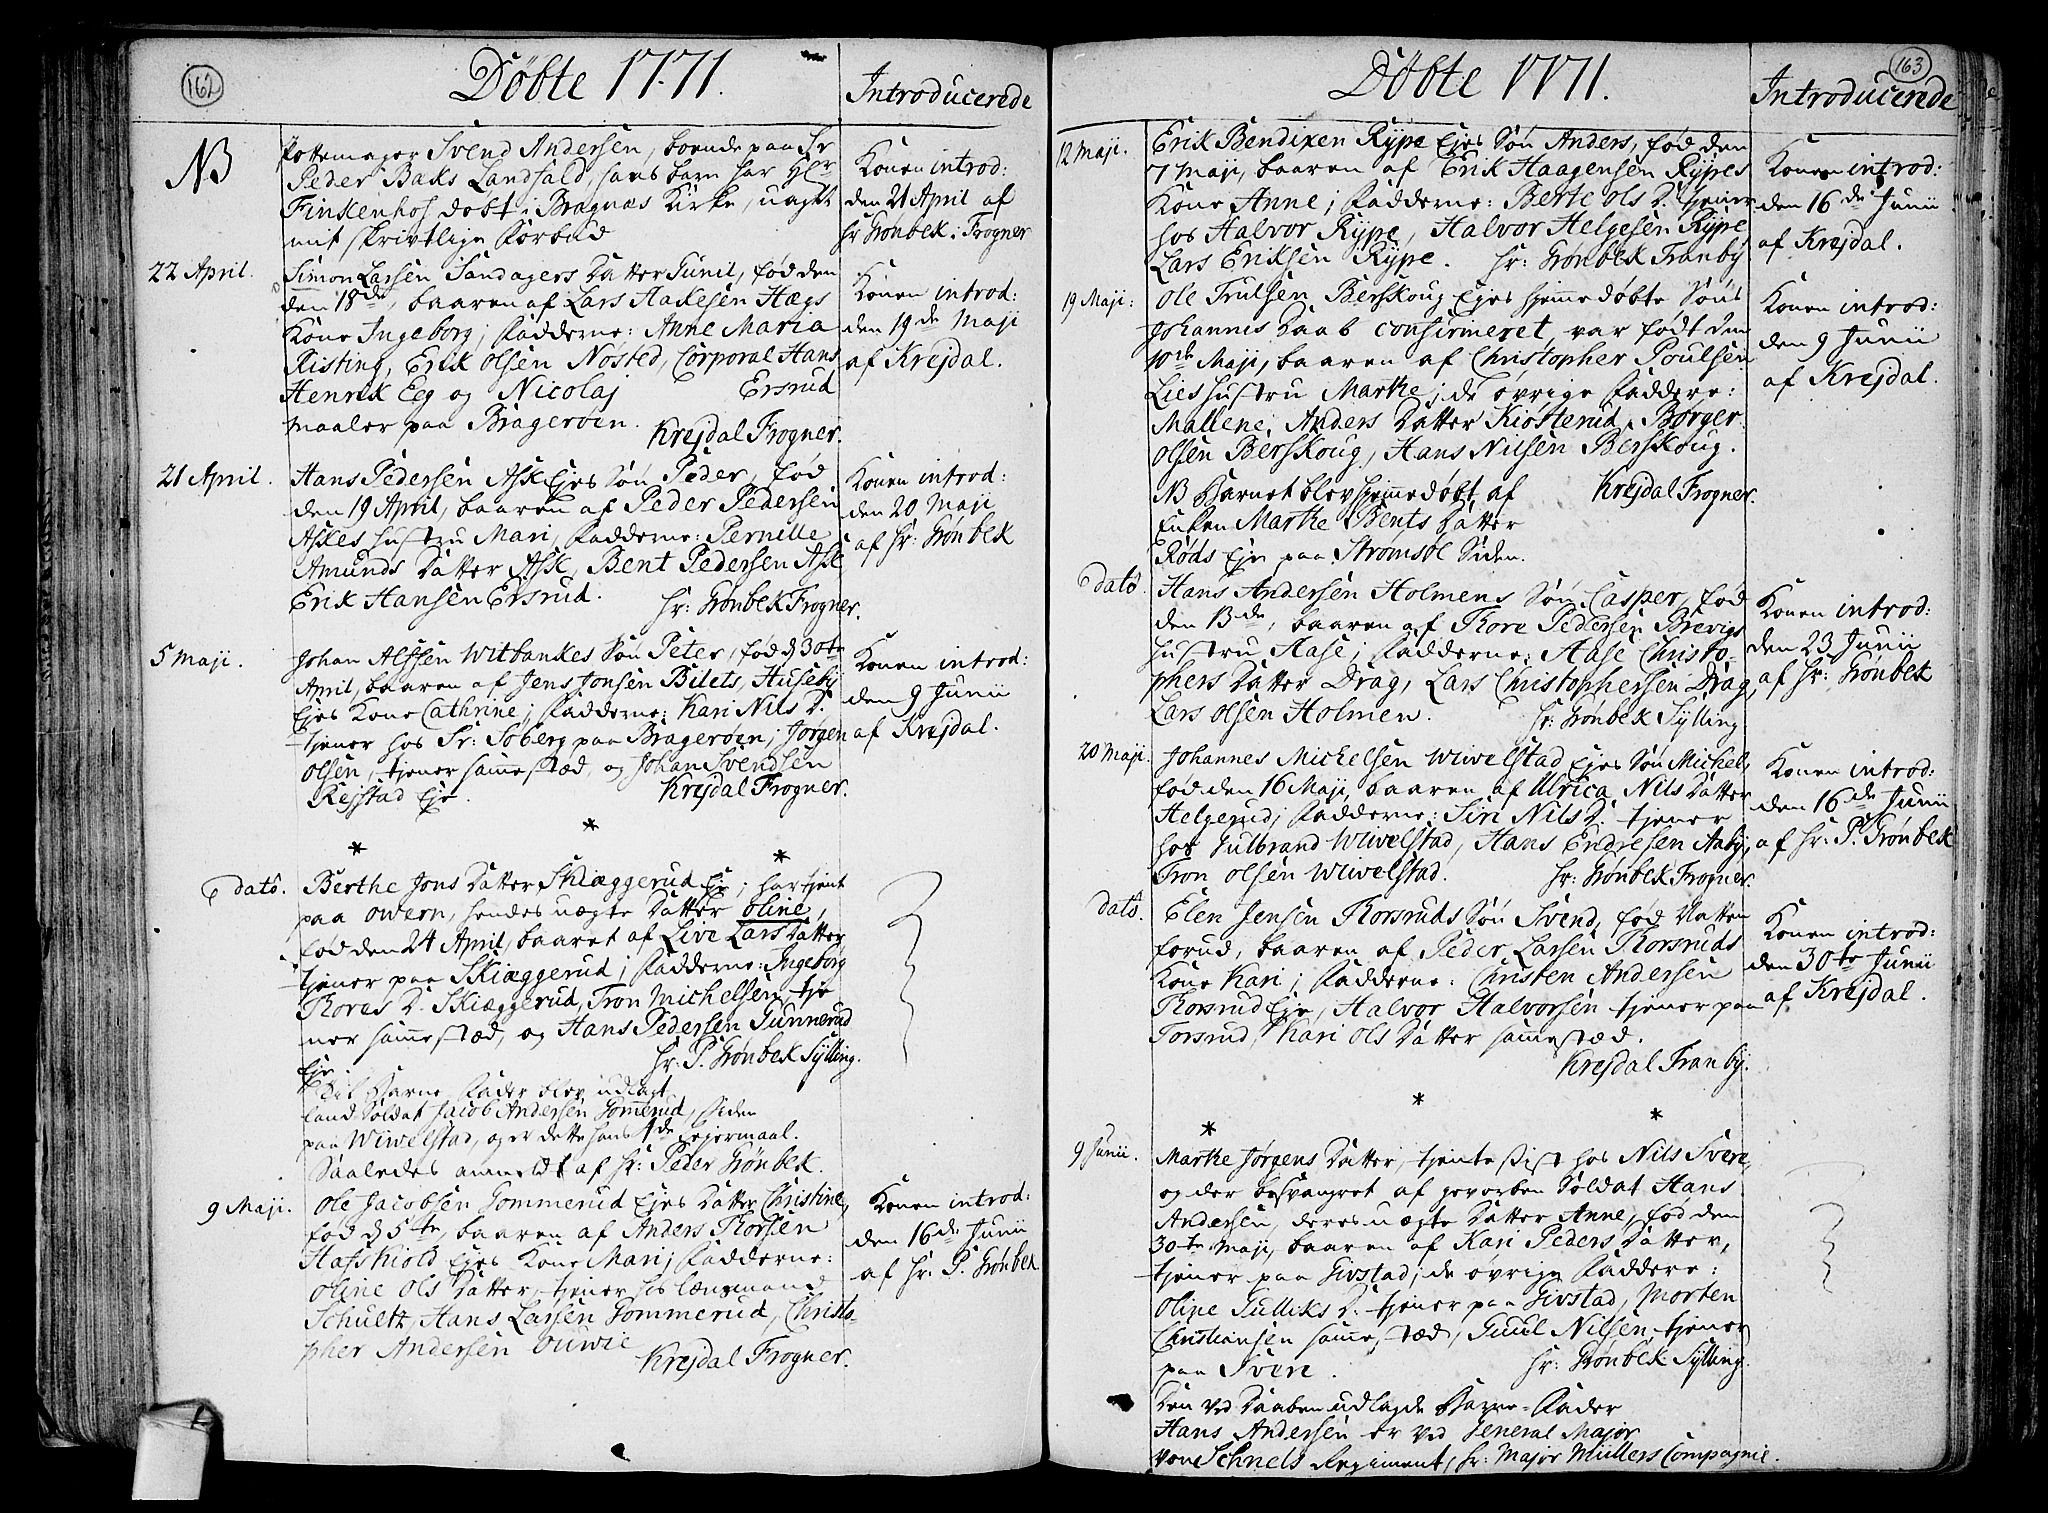 162
Döbte 1771.
Introducerede
NB
Pottemager Svend Andersen, boende paa Sr
Peder Baks Landfald, hans barn har Hr
Finkenhof döbt i Bragnæs Kirke, uagtet
mit skrivtlige Forbud
Konen introd:
den 21 April af
Hr Grønbek i Frogner
22 April.
Simon Larsen Sandagers Datter Gunil, fød den
den 18de, baaren af Lars Aakesen Hægs
Kone Ingeborg; Fadderne: Anne Maria
Risting, Erik Olsen Nösted, Corporal Hans
Henrik Eeg og Nicolaj Ersrud
maaler paa Bragerøen.
Krejdal Frogner.
Konen introd:
den 19de Maji
af Krejdal.
21 April.
Hans Pedersen Ask Ejes Sön Peder, fød
den 19 April, baaren af Peder Pedersen
Askes Hustru Mari, Fadderne: Pernille
Amunds Datter Ask, Bent Pedersen Ask
Erik Hansen Ersrud.
Hr: Grønbek Frogner.
Konen introd:
den 20 Maji
af Hr: Grønbek
5 Maji.
Johan Alfsen Witbankes Sön Peter, fød d 30te
April, baaren af Jens Jonsen Bilets, Huseby
Ejes Kone Cathrine; Fadderne: Kari Nils D.
tjener hos Sr: Soberg paa Bragerøen; Jørgen
Olsen, tjener sammested, og Johan Svendsen
Rejstad Eje.
Krejdal Frogner.
Konen introd:
den 9 Junii
af Krejdal.
*
* *
dato.
Berthe Jons Datter Skiæggerud Eje; har tjent
paa Owern, hendes uægte Datter Oline,
fød den 24 April, baaret af Live Lars Datter,
tjener paa Skiæggerud; Fadderne: Ingeborg
Thores D. Skiæggerud, Tron Michelsen tje
ner sammested, og Hans Pedersen Gunnerud
Eje.
Hr: P. Grønbek Sylling.
Til Barne Fader blev udlagt
land Soldat Jacob Andersen Gommerud, siden
paa Wiwelstad, og er dette hans 1de Lejermaal.
Saaledes anmeldt af Hr: Peder Grønbek.
9 Maji.
Ole Jacobsen Gommerud Ejes Datter Christine,
fød d 5te, baaren af Anders Thorsen
Hafskiold Ejes Kone Mari; Fadderne:
Oline Ols Datter, tjener hos Lænsmand
Schultz, Hans Larsen Gommerud, Christo-
pher Andersen Ouwie
Krejdal Frogner.
Konen introd:
den 16de Junii
af Hr: P. Grønbek
163
Döbte 1771.
Introducerede
12 Maji.
Erik Bendixen Rype Ejes Sön Anders, fød den
7 Maji, baaren af Erik Haagensen Rypes
Kone Anne; Fadderne: Berte Ols D. tjener
hos Halvor Rype, Halvor Helgesen Rype
Lars Eriksen Rype. Hr: Grønbek Tranby
Konen introd:
den 16de Junii
af Krejdal.
19 Maji:
Ole Trulsen Berskoug Ejes hjemmedøbte Søns
Johannis Daab confirmeret, var født den
10de Maji, baaren af Christopher Poulsen
Lies Hustru Marthe, de øvrige Faddere:
Mallene Anders Datter Kiosterud, Børger
Olsen Berskoug, Hans Nilsen Berskoug.
NB Barnet blev hjemmedøbt af
Enken Marthe Bents Datter
Røds Eje paa Strømsøe Siden.
Krejdal Frogner.
Konen introd:
den 9 Junii
af Krejdal.
dato.
Hans Andersen Holmens Sön Casper, fød
den 13de, baaren af Thore Pedersen Brevigs
Hustru Aase; Fadderne: Aase Christo-
phers Datter Drag, Lars Christophersen Drag,
Lars Olsen Holmen.
Hr: Grønbek Sylling
Konen introd:
den 23 Junii
af Hr: Grønbek
20 Maji.
Johannes Michelsen Wiwelstad Ejes Sön Michel,
fød den 16 Maji, baaren af Ulrica Nils Datter
Helgerud; Fadderne: Siri Nils D. tjener
hos Gulbrand Wiwelstad, Hans Endresen Aaby,
Tron Olsen Wiwelstad.
Hr: Grønbek Frogner.
Konen introd:
den 16de Junii
af Hr: P. Grønbek
dato.
Elen Jensen Thorsruds Sön Svend, fød Natten
forud, baaren af Peder Larsen Thorsruds
Kone Kari; Fadderne: Christen Andersen
Thorsrud Eje, Halvor Halvorsen tjener paa
Torsrud, Kari Ols Datter sammested.
Krejdal Tranby.
Konen introd:
den 30te Junii
af Krejdal.
*
* *
9 Junii.
Marthe Jørgens Datter, tjente sidst hos Nils Svere,
og der besvangret af gevorben Soldat Hans
Andersen, deres uægte Datter Anne, fød den
30te Maji, baaren af Kari Peders Datter,
tjener paa Givstad; de øvrige Faddere:
Oline Gulliks D. tjener paa Givstad, Morten
Christiansen sammested, Guul Nilsen, tjener
paa Svere.
Hr: Grønbek Sylling.
Den ved Daaben udlagde Barne-Fader
Hans Andersen er ved General Major
von Schnels Regiment, Hr: Major Müllers Compagnie.